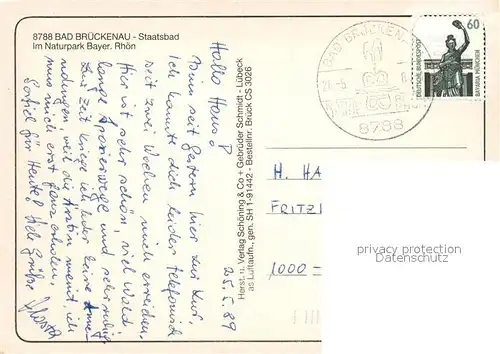 8788 BAD BRÜCKENAU - Staatsbad
Im Naturpark Bayer. Rhön
25.5.89
Hallo Hans!
Bin seit gestern hier zur Kur,
ich konnte dich leider telefonisch
seit zwei Wochen nicht erreichen.
Hier ist sehr schön, viel Wald,
lange Spazierwege und sehr ruhig
Zur Zeit kriege ich leider keine Anwe-
ndungen, weil die Ärztin meint, ich
muss mich erst ganz erholen.
Soviel für Heute! Liebe Grüße
Herst. u. Verlag Schöning & Co + Gebrüder Schmidt - Lübeck
as Luftaufn., gen. SH 1-91442 - Bestellnr. Brück CS 3026
BAD BRÜCKEN
8788
60
DEUTSCHE BUNDESPOST
BAVARIA MÜNCHEN
H. HA
FRITZ
1000 -
privacy protection
Datenschutz